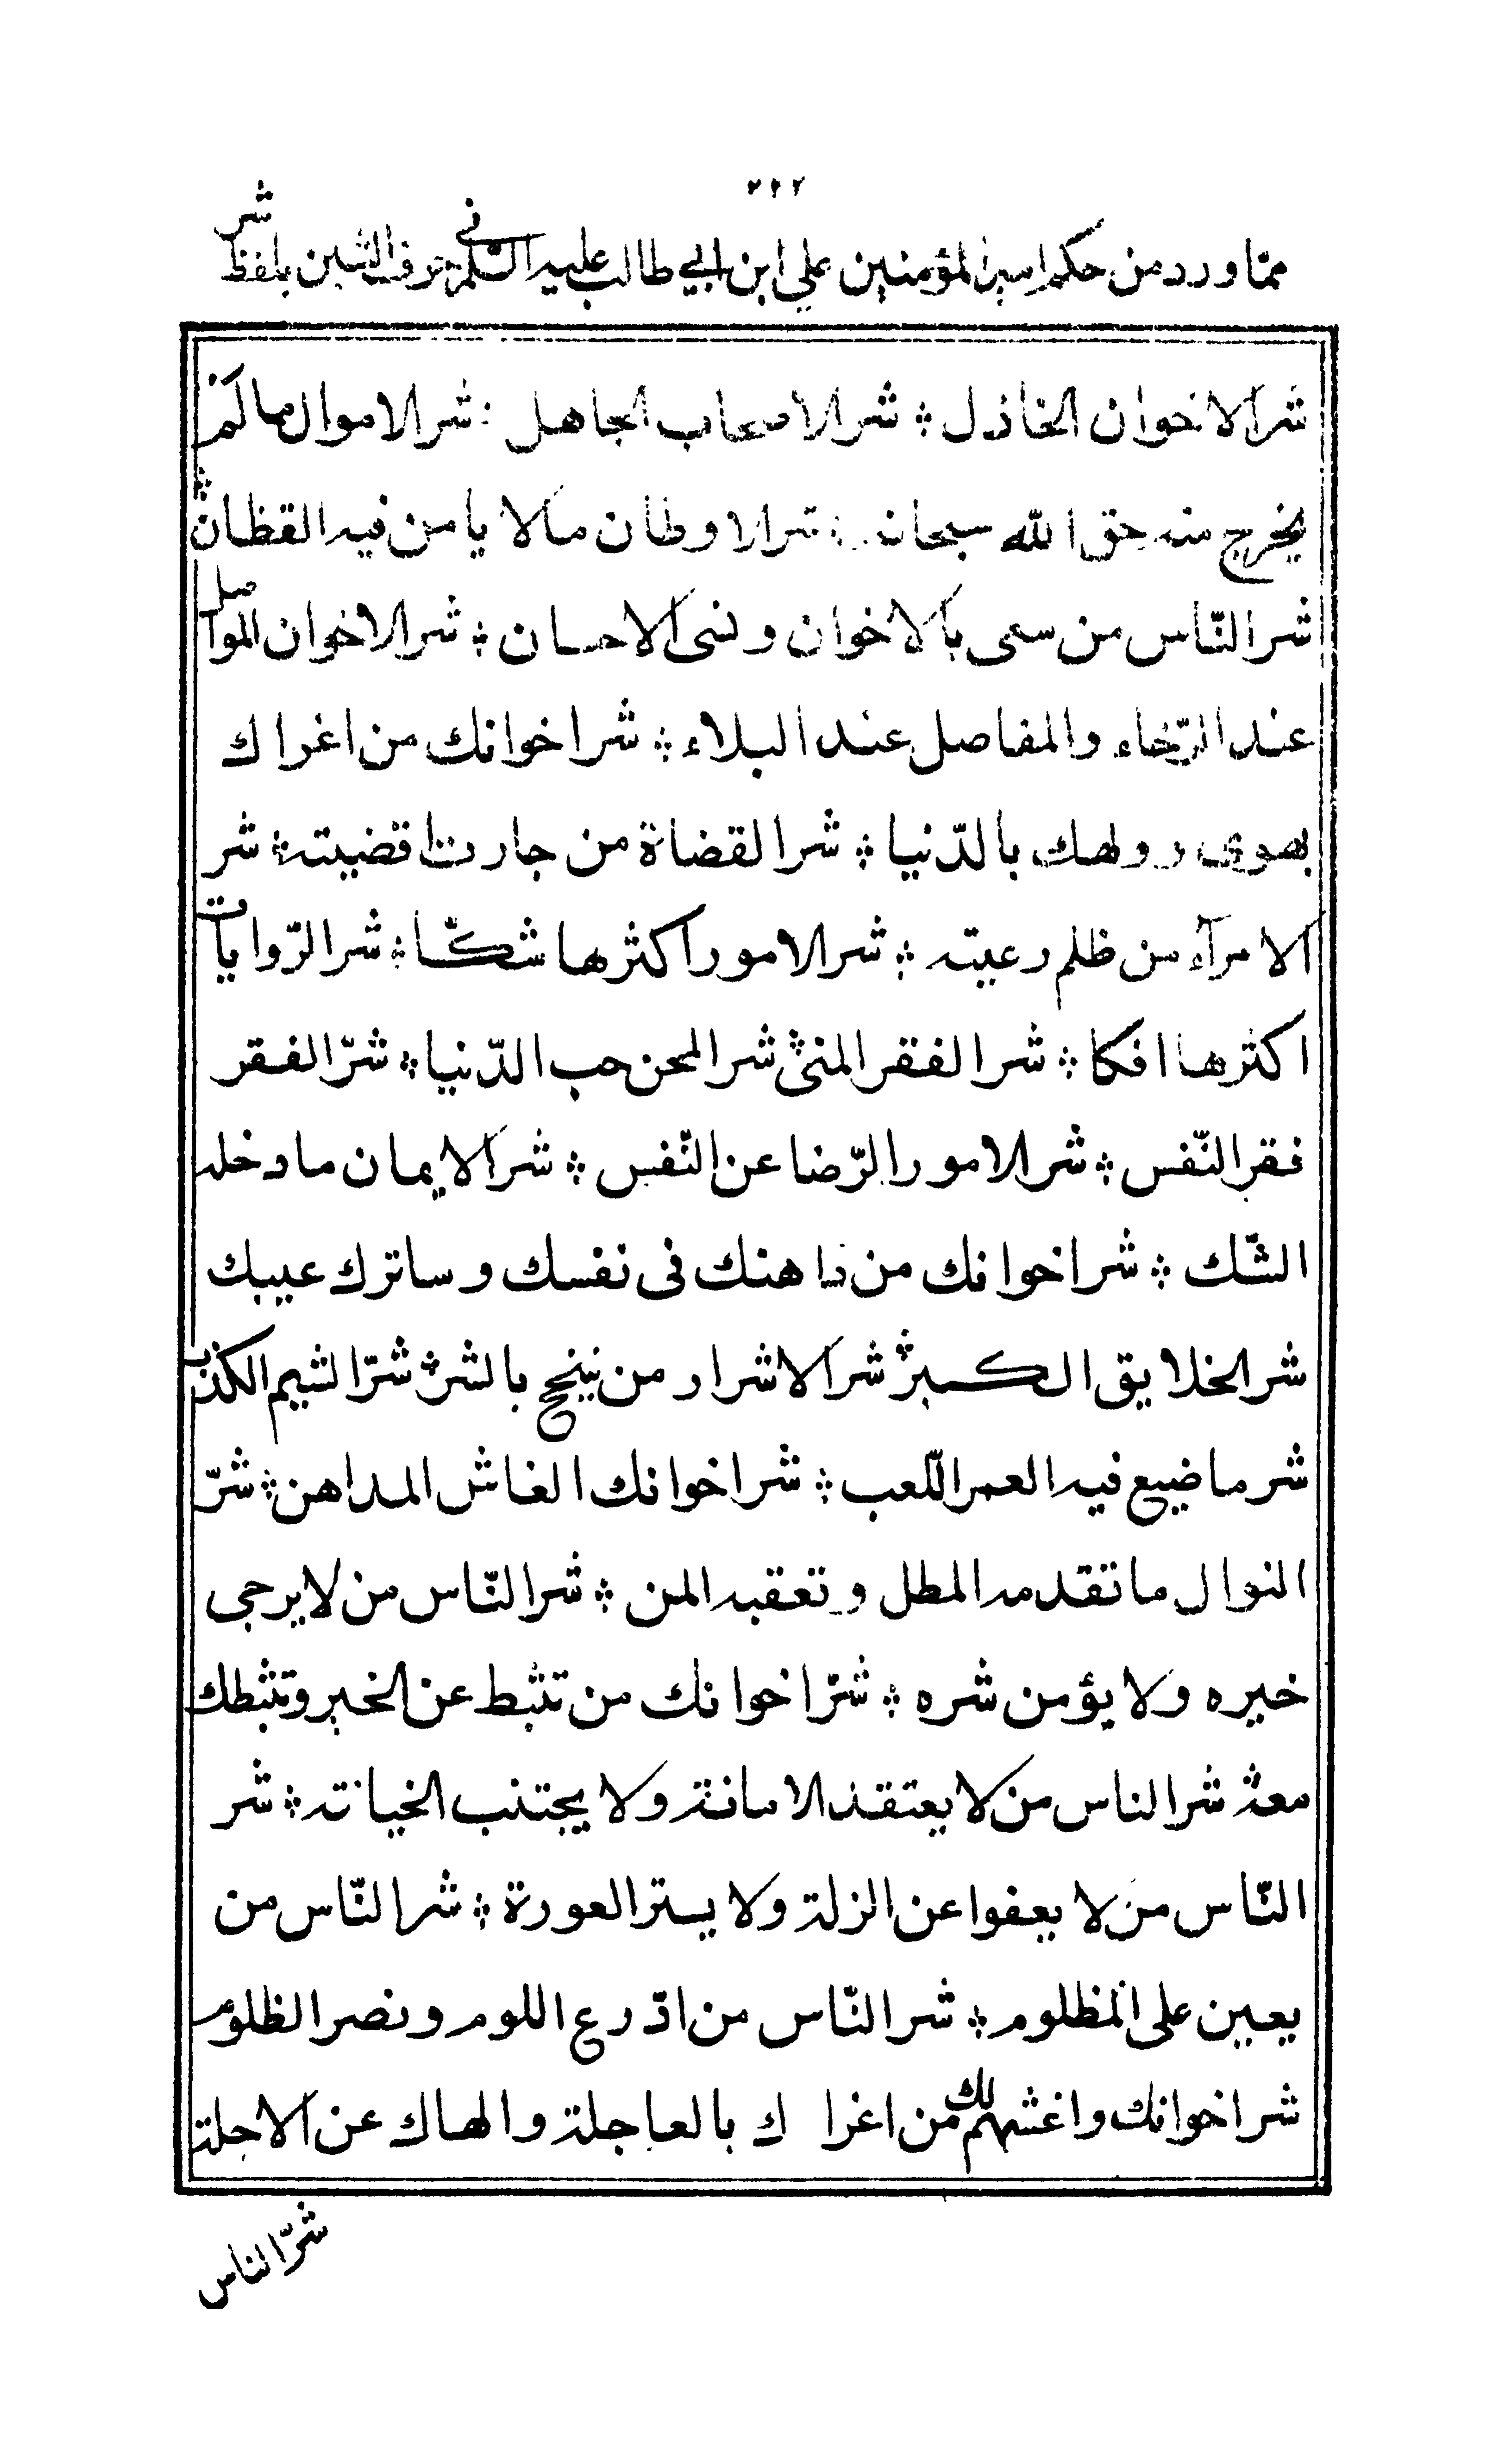 ٢١٢
ممّا ورد من حكم امير المؤمنين علي ابن ابي طالب عليه السّلم في حرف الشين بلفظ شر
شر الاخوان الخاذل ؞ شر الاصحاب الجاهل ؞ شر الاموال ما لم
يخرج منه حق الله سبحانه ؞ شر الاوطان ما لا يامن فيه القطان ؞
شر النّاس من سعى بالاخوان ونسى الاحسان ؞ شر الاخوان المواصل
عند الرّخاء والمفاصل عند البلاء ؞ شر اخوانك من اغراك
بهوى وولهك بالدّنيا ؞ شر القضاة من جارت اقضيته ؞ شر
الامرآء من ظلم رعيته ؞ شر الامور اكثرها شكّا ؞ شر الرّوايات
اكثرها افكا ؞ شر الفقر المنى ؞ شر المحن حب الدّنيا ؞ شرّ الفقر
فقر النّفس ؞ شر الامور الرّضا عن النّفس ؞ شر الايمان ما دخله
الشّك ؞ شر اخوانك من داهنك فى نفسك وساترك عيبك
شر الخلايق الكبر ؞ شر الاشرار من يتبجح بالشر ؞ شرّ الشيم الكذب
شر ما ضيع فيه العمر اللّعب ؞ شر اخوانك الغاش المداهن ؞ شرّ
النوال ما تقدمه المطل وتعقبه المن ؞ شر النّاس من لا يرجى
خيره ولا يؤمن شره ؞ شرّ اخوانك من تثبط عن الخير وتثبطك
معه ؞ شر الناس من لا يعتقد الامانة ولا يجتنب الخيانة ؞ شر
النّاس من لا يعفوا عن الزلة ولا يستر العورة ؞ شر النّاس من
يعين على المظلوم ؞ شر النّاس من ادّرع اللوم ونصر الظلوم
شر اخوانك واغشهم لك من اغراك بالعاجلة والهاك عن الاجلة
شرّ الناس